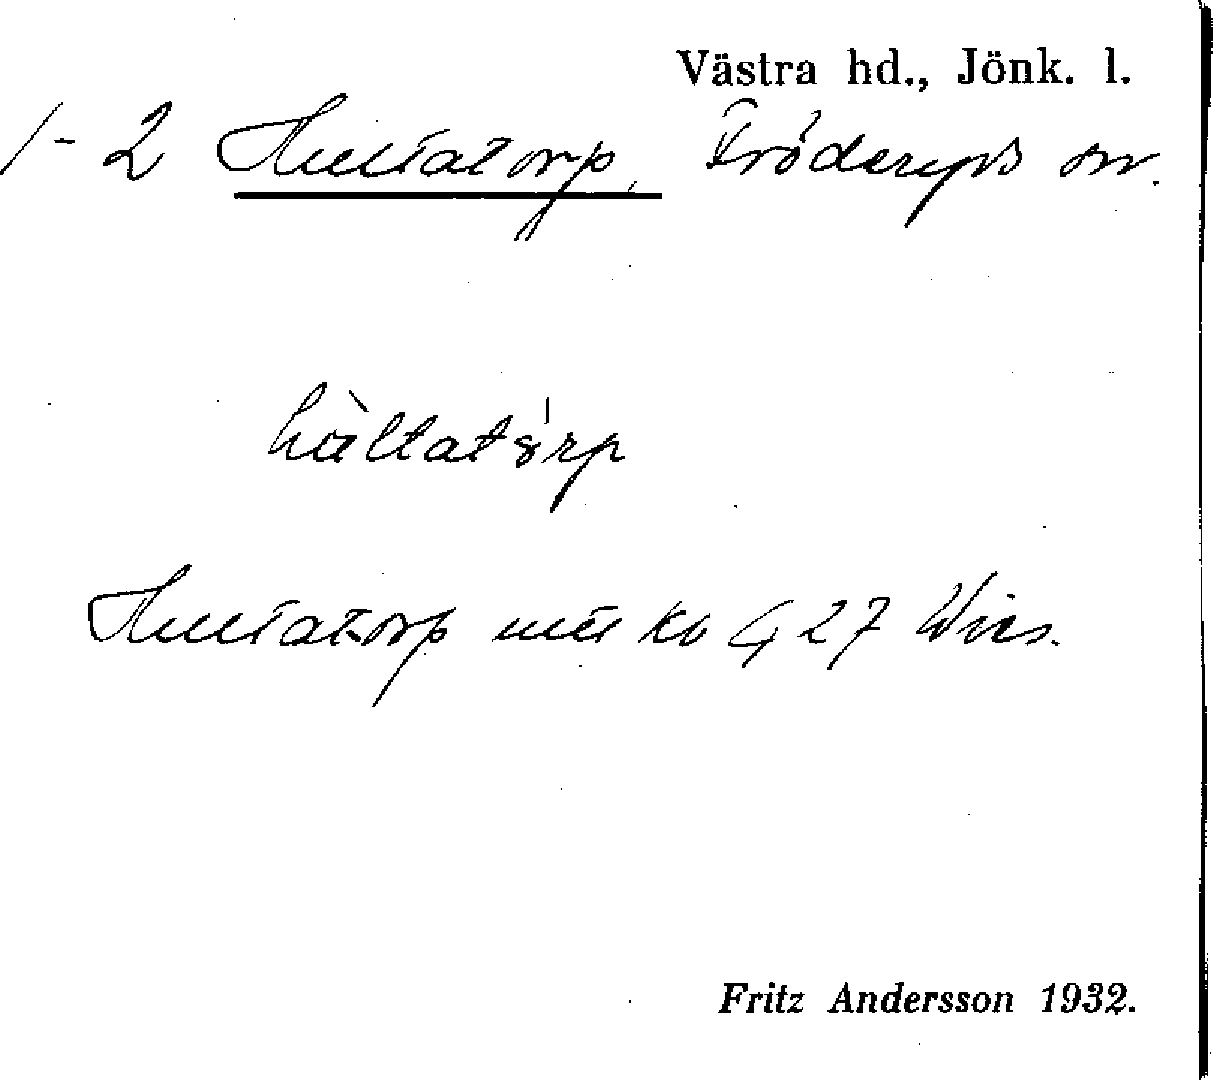 Västra hd., Jönk. l.
1-2 Hultatorp, Fröderyds sn.
hùltatórp
Hultatorp 427
Fritz Andersson 1932.